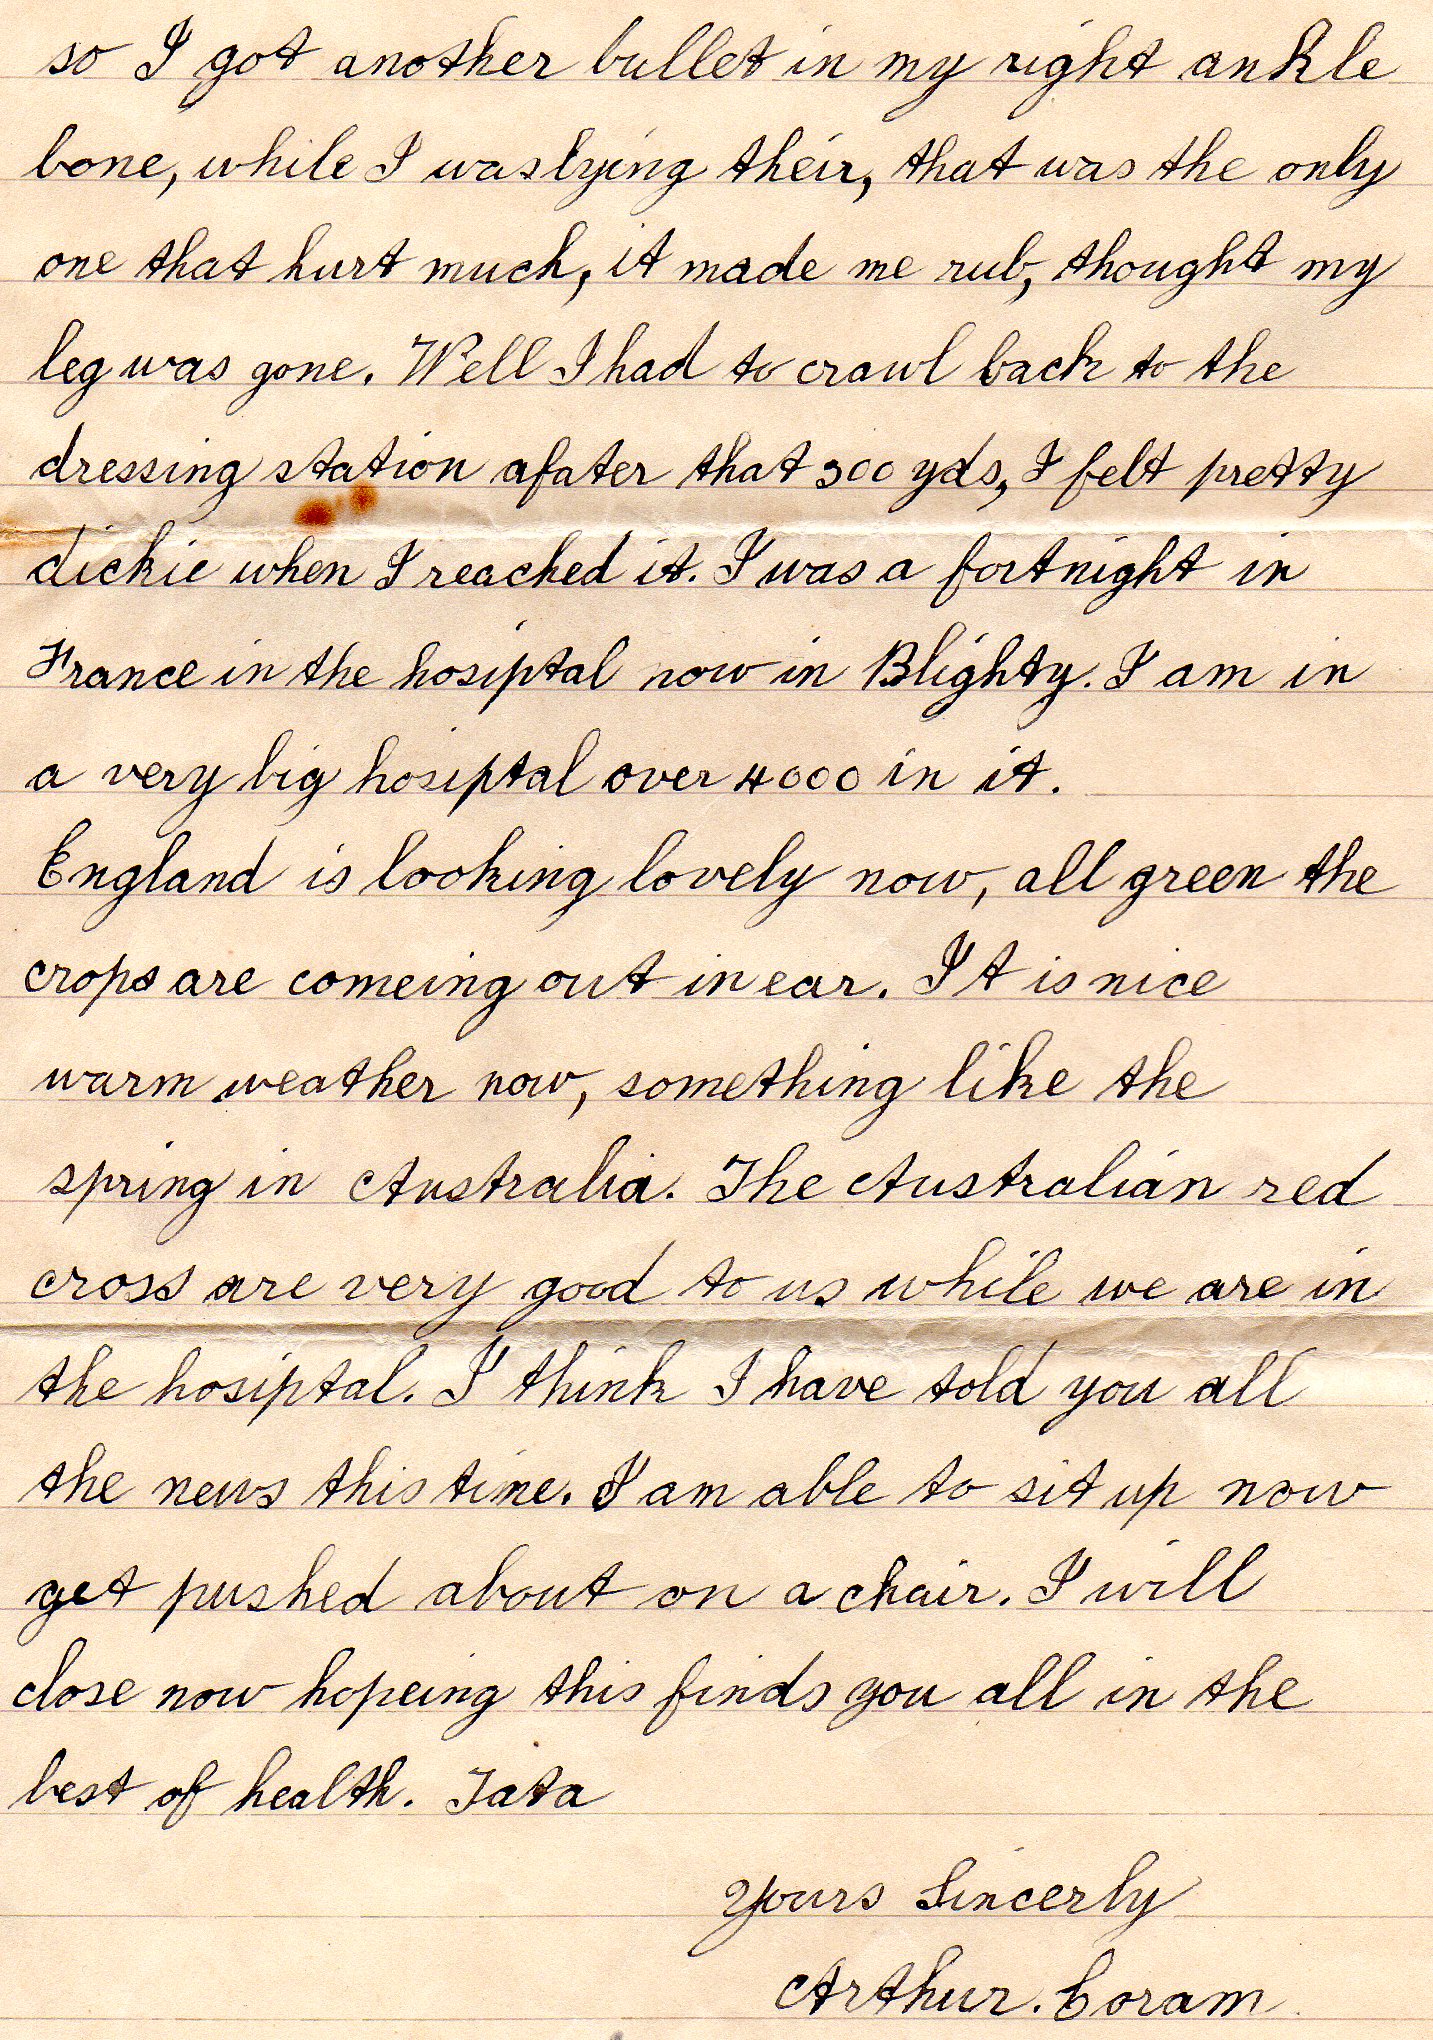 so I got another bullet in my right ankle
bone, while I was lying their, that was the only
one that hurt much, it made me rub, thought my
leg was gone. Well I had to crawl back to the
dressing station afater that 300 yds, I felt pretty
dickie when I reached it. I was a fortnight in
France in the hosiptal now in Blighty. I am in
a very big hosiptal over 4000 in it.
England is looking lovely now, all green the
crops are comeing out in ear. It is nice
warm weather now, something like the
spring in Australia. The Australian red
cross are very good to us while we are in
the hosiptal. I think I have told you all
the news this time. I am able to sit up now
get pushed about on a chair. I will
close now hopeing this finds you all in the
best of health. Tata
Yours Sincerly
Arthur. Coram